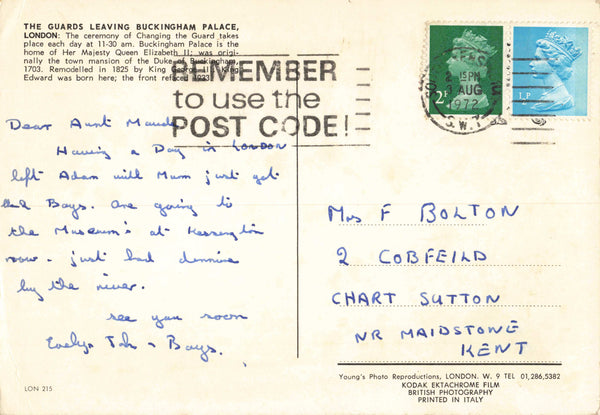 THE GUARDS LEAVING BUCKINGHAM PALACE,
LONDON: The ceremony of Changing the Guard takes
place each day at 11-30 am. Buckingham Palace is the
home of Her Majesty Queen Elizabeth II; was origi-
nally the town mansion of the Duke of Buckingham
1703. Remodelled in 1825 by King George III. King
Edward was born here; the front refaced 1923.
REMEMBER
to use the
POST CODE!
2 15PM
3 AUG
1972
S.W.7
2P
½P
Dear Aunt Maude
Having a Day in LONDON
left Adam with Mum just got
Boys. are going to
the Museum's at
now. just had
by the river.
see you soon
Evelyn & Boys.
Mrs F BOLTON
2 COBFEILD
CHART SUTTON
NR MAIDSTONE
KENT
LON 215
Young's Photo Reproductions, LONDON. W. 9 TEL 01,286,5382
KODAK EKTACHROME FILM
BRITISH PHOTOGRAPHY
PRINTED IN ITALY